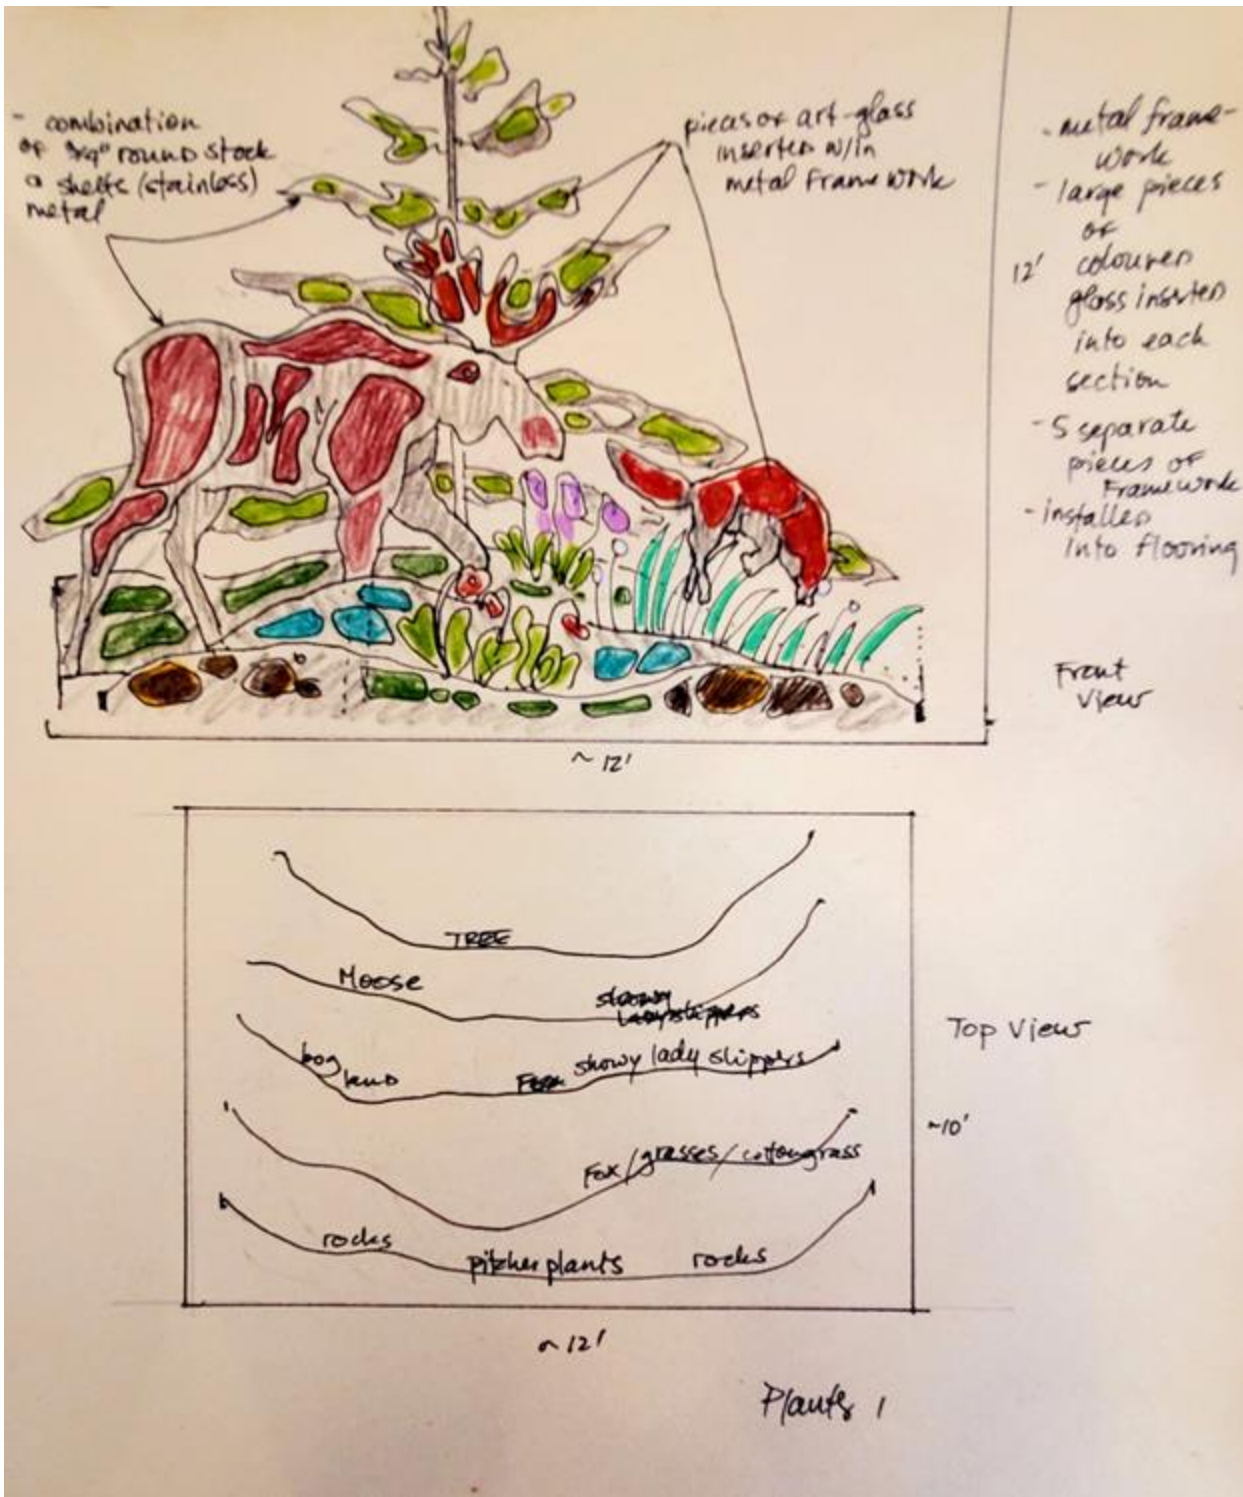 - combination
of 3/4" round stock
& shelts (stainless)
metal
pieces of art-glass
inserted w/in
metal Framework
- metal frame-
work
- large pieces
of
coloured
glass inserted
into each
section
- 5 separate
pieces of
Framework
- installed
into flooring
12'
Front
View
~ 12'
TREE
Moose
showy
ladyslippers
bog
land
Fox
showy lady slippers
Fox/grasses/cottongrass
rocks
pitcher plants
rocks
Top View
~10'
~ 12'
Plants 1